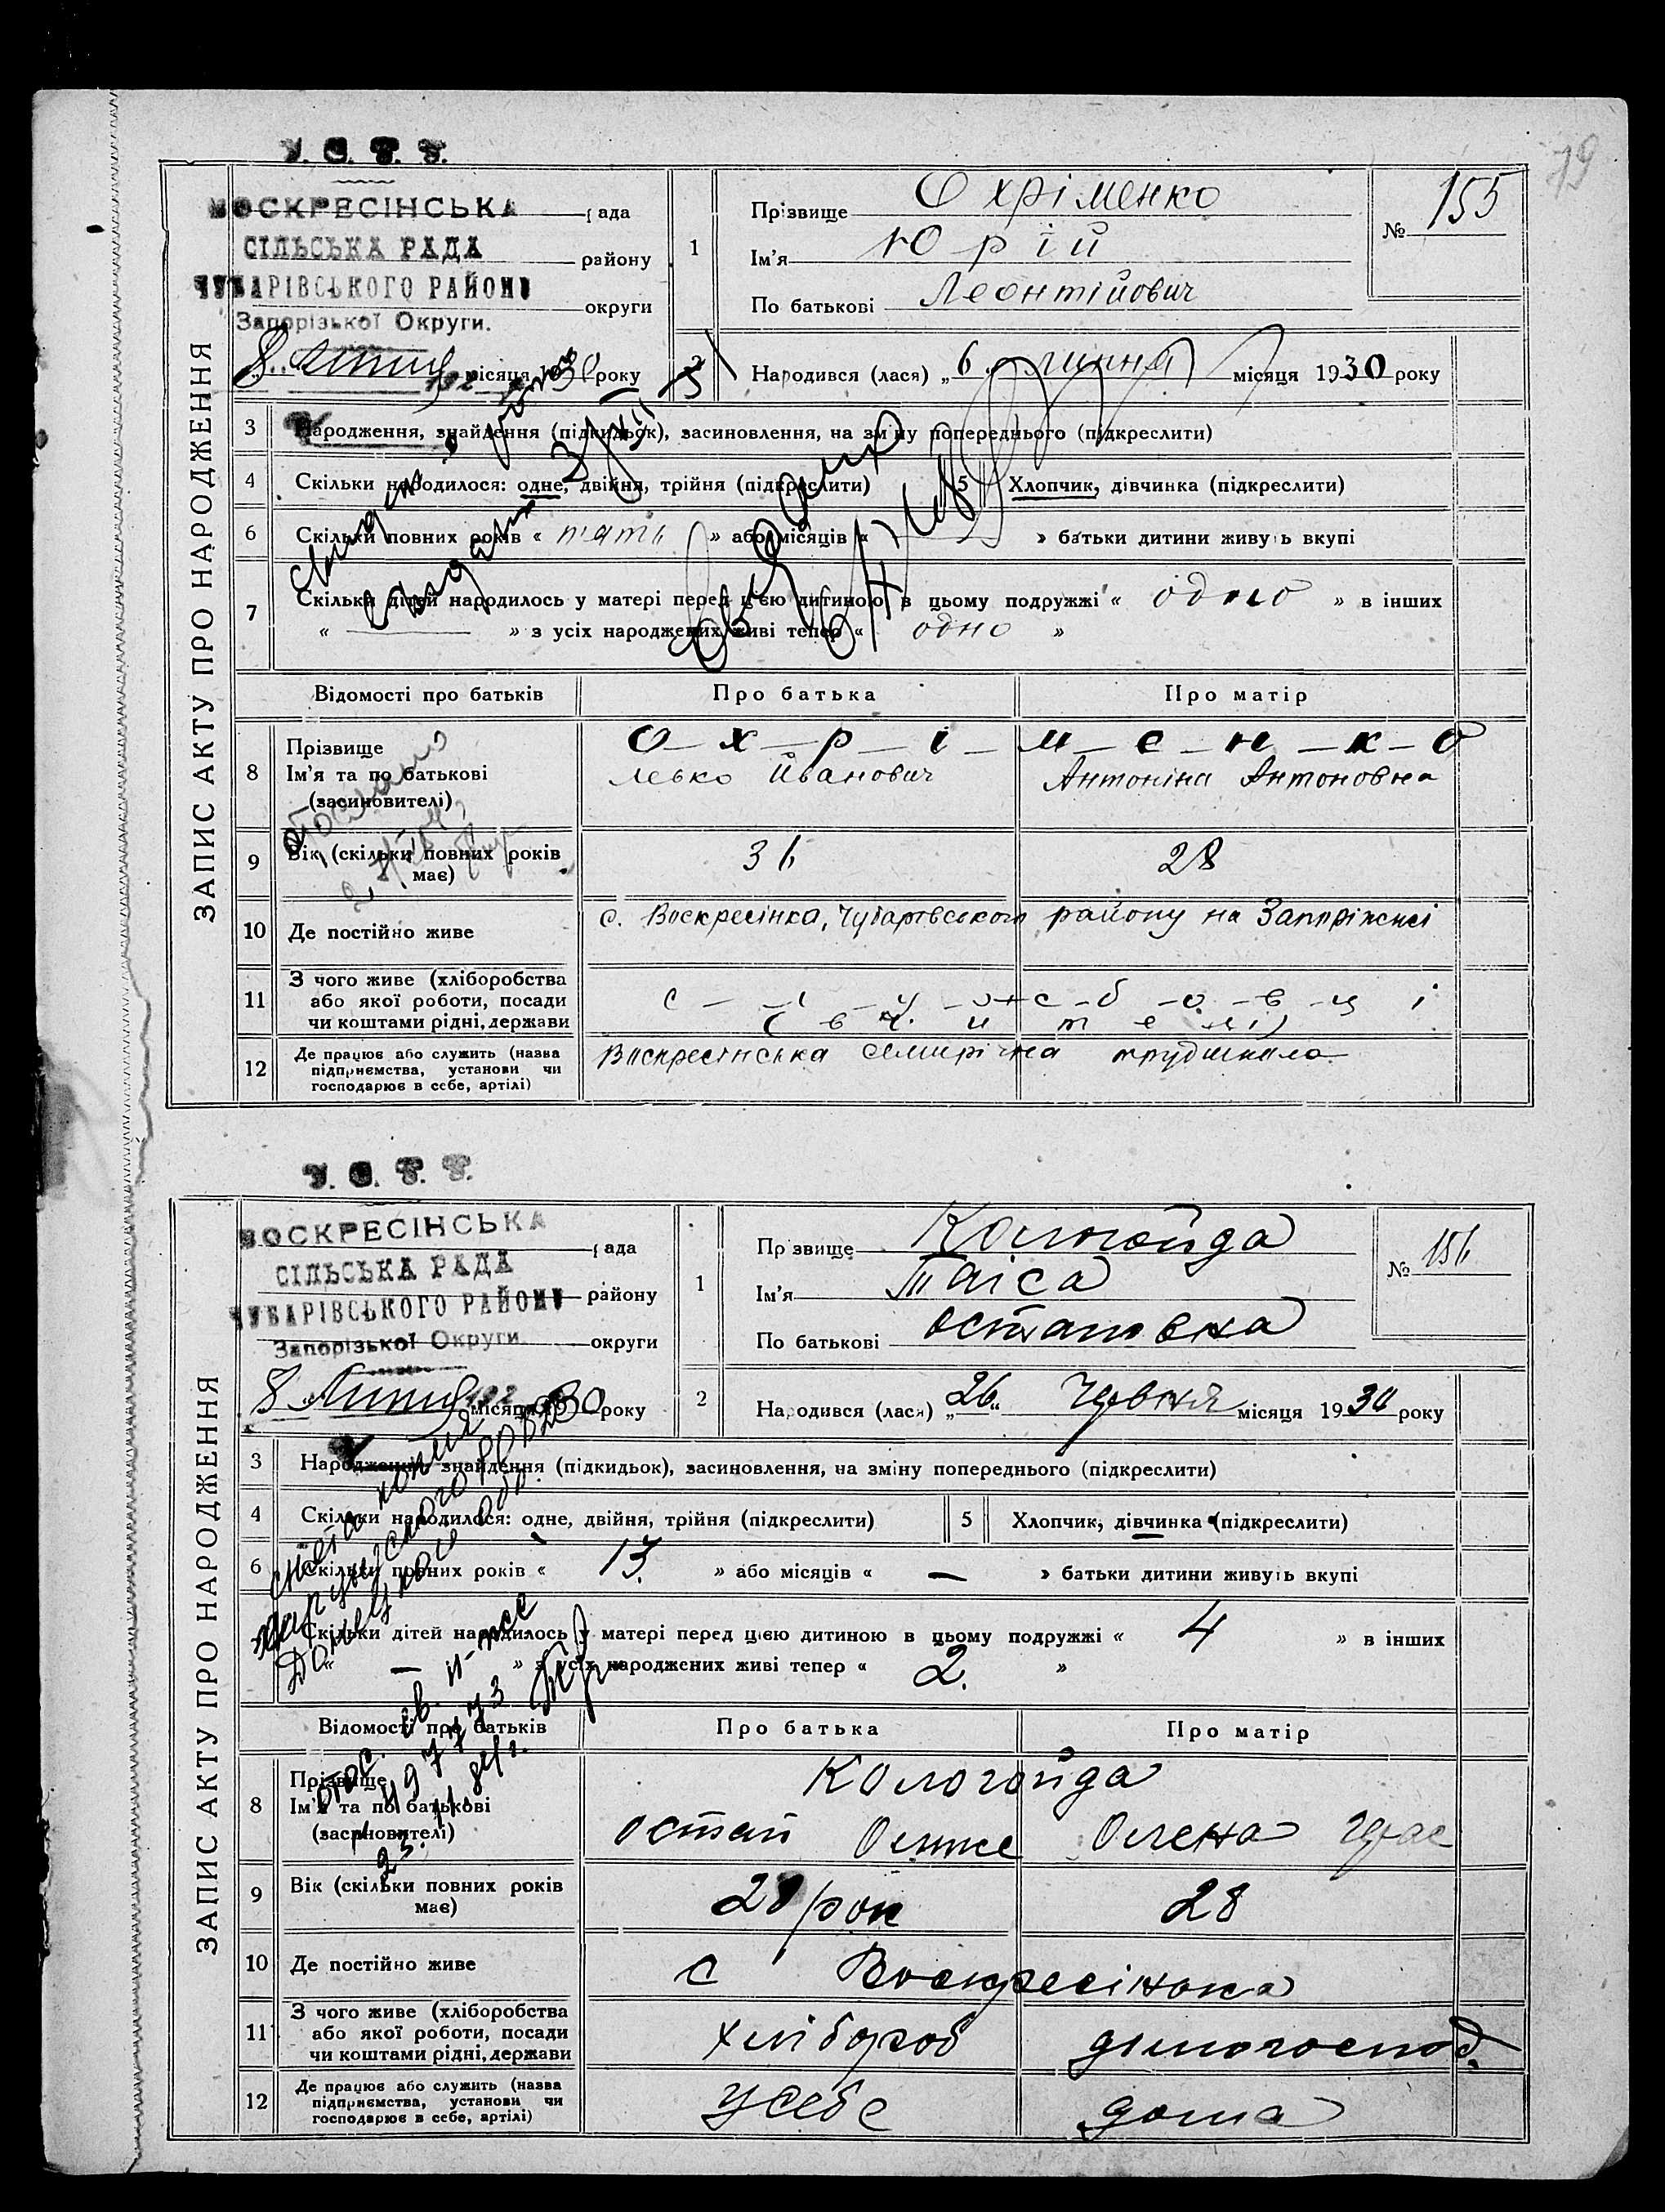 79
У. С. Р. Р.
ВОСКРЕСІНСЬКА рада
СІЛЬСЬКА РАДА району
ЧУБАРІВСЬКОГО РАЙОНУ округи
Запорізької Округи.
8 липня місяця 1930 року
ЗАПИС АКТУ ПРО НАРОДЖЕННЯ
1 Прізвище Охріменко
Ім'я Юрій
По батькові Леонтійович
№ 155
Народився (лася) „6 липня місяця 1930 року
3 Народження, знайдення (підкидьок), засиновлення, на зміну попереднього (підкреслити)
4 Скільки народилося: одне, двійня, трійня (підкреслити) 5 Хлопчик, дівчинка (підкреслити)
6 Скільки повних років « п'ять » або місяців « — » батьки дитини живуть вкупі
7 Скільки дітей народилось у матері перед цією дитиною в цьому подружжі « одно » в інших
« — » з усіх народжених живі тепер « одно »
Відомості про батьків Про батька Про матір
8 Прізвище О-х-р-і-м-е-н-к-о
Ім'я та по батькові Левко Иванович Антоніна Антоновна
(засиновителі)
отослано
9 Вік (скільки повних років має) 31 28
10 Де постійно живе с. Воскресінка, Чубарівського району на Запоріжжі
11 З чого живе (хліборобства
або якої роботи, посади
чи коштами рідні, держави
(в ч и т е л і)
12 Де працює або служить (назва
підприємства, установи чи
господарює в себе, артілі)
Воскресінська семирічна трудшкола
У. С. Р. Р.
ВОСКРЕСІНСЬКА рада
СІЛЬСЬКА РАДА району
ЧУБАРІВСЬКОГО РАЙОНУ округи
Запорізької Округи.
8 липня місяця 1930 року
ЗАПИС АКТУ ПРО НАРОДЖЕННЯ
1 Прізвище Кологойда
Ім'я Таіса
По батькові Остаповна
№ 156
2 Народився (лася) „26" Червня місяця 1930 року
3 Народження, знайдення (підкидьок), засиновлення, на зміну попереднього (підкреслити)
4 Скільки народилося: одне, двійня, трійня (підкреслити) 5 Хлопчик, дівчинка (підкреслити)
6 Скільки повних років « 13 » або місяців « — » батьки дитини живуть вкупі
Скільки дітей народилось у матері перед цією дитиною в цьому подружжі « 4 » в інших
« — » з усіх народжених живі тепер « 2. »
Відомості про батьків Про батька Про матір
8 Прізвище Кологойда
Ім'я та по батькові Остап Олена
(засиновителі)
9 Вік (скільки повних років має) 28 28
10 Де постійно живе с Воскресінка
11 З чого живе (хліборобства
або якої роботи, посади
чи коштами рідні, держави
хлібороб домогоспод.
12 Де працює або служить (назва
підприємства, установи чи
господарює в себе, артілі)
у себе дома